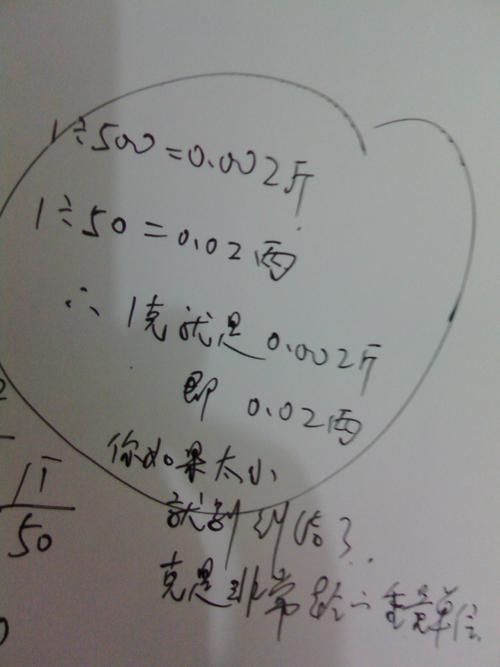 1÷500=0.002斤
1÷50=0.02两
∴ 1克就是0.002斤
即 0.02两
你如果太小
就别纠结了
克是非常小重量单位
50